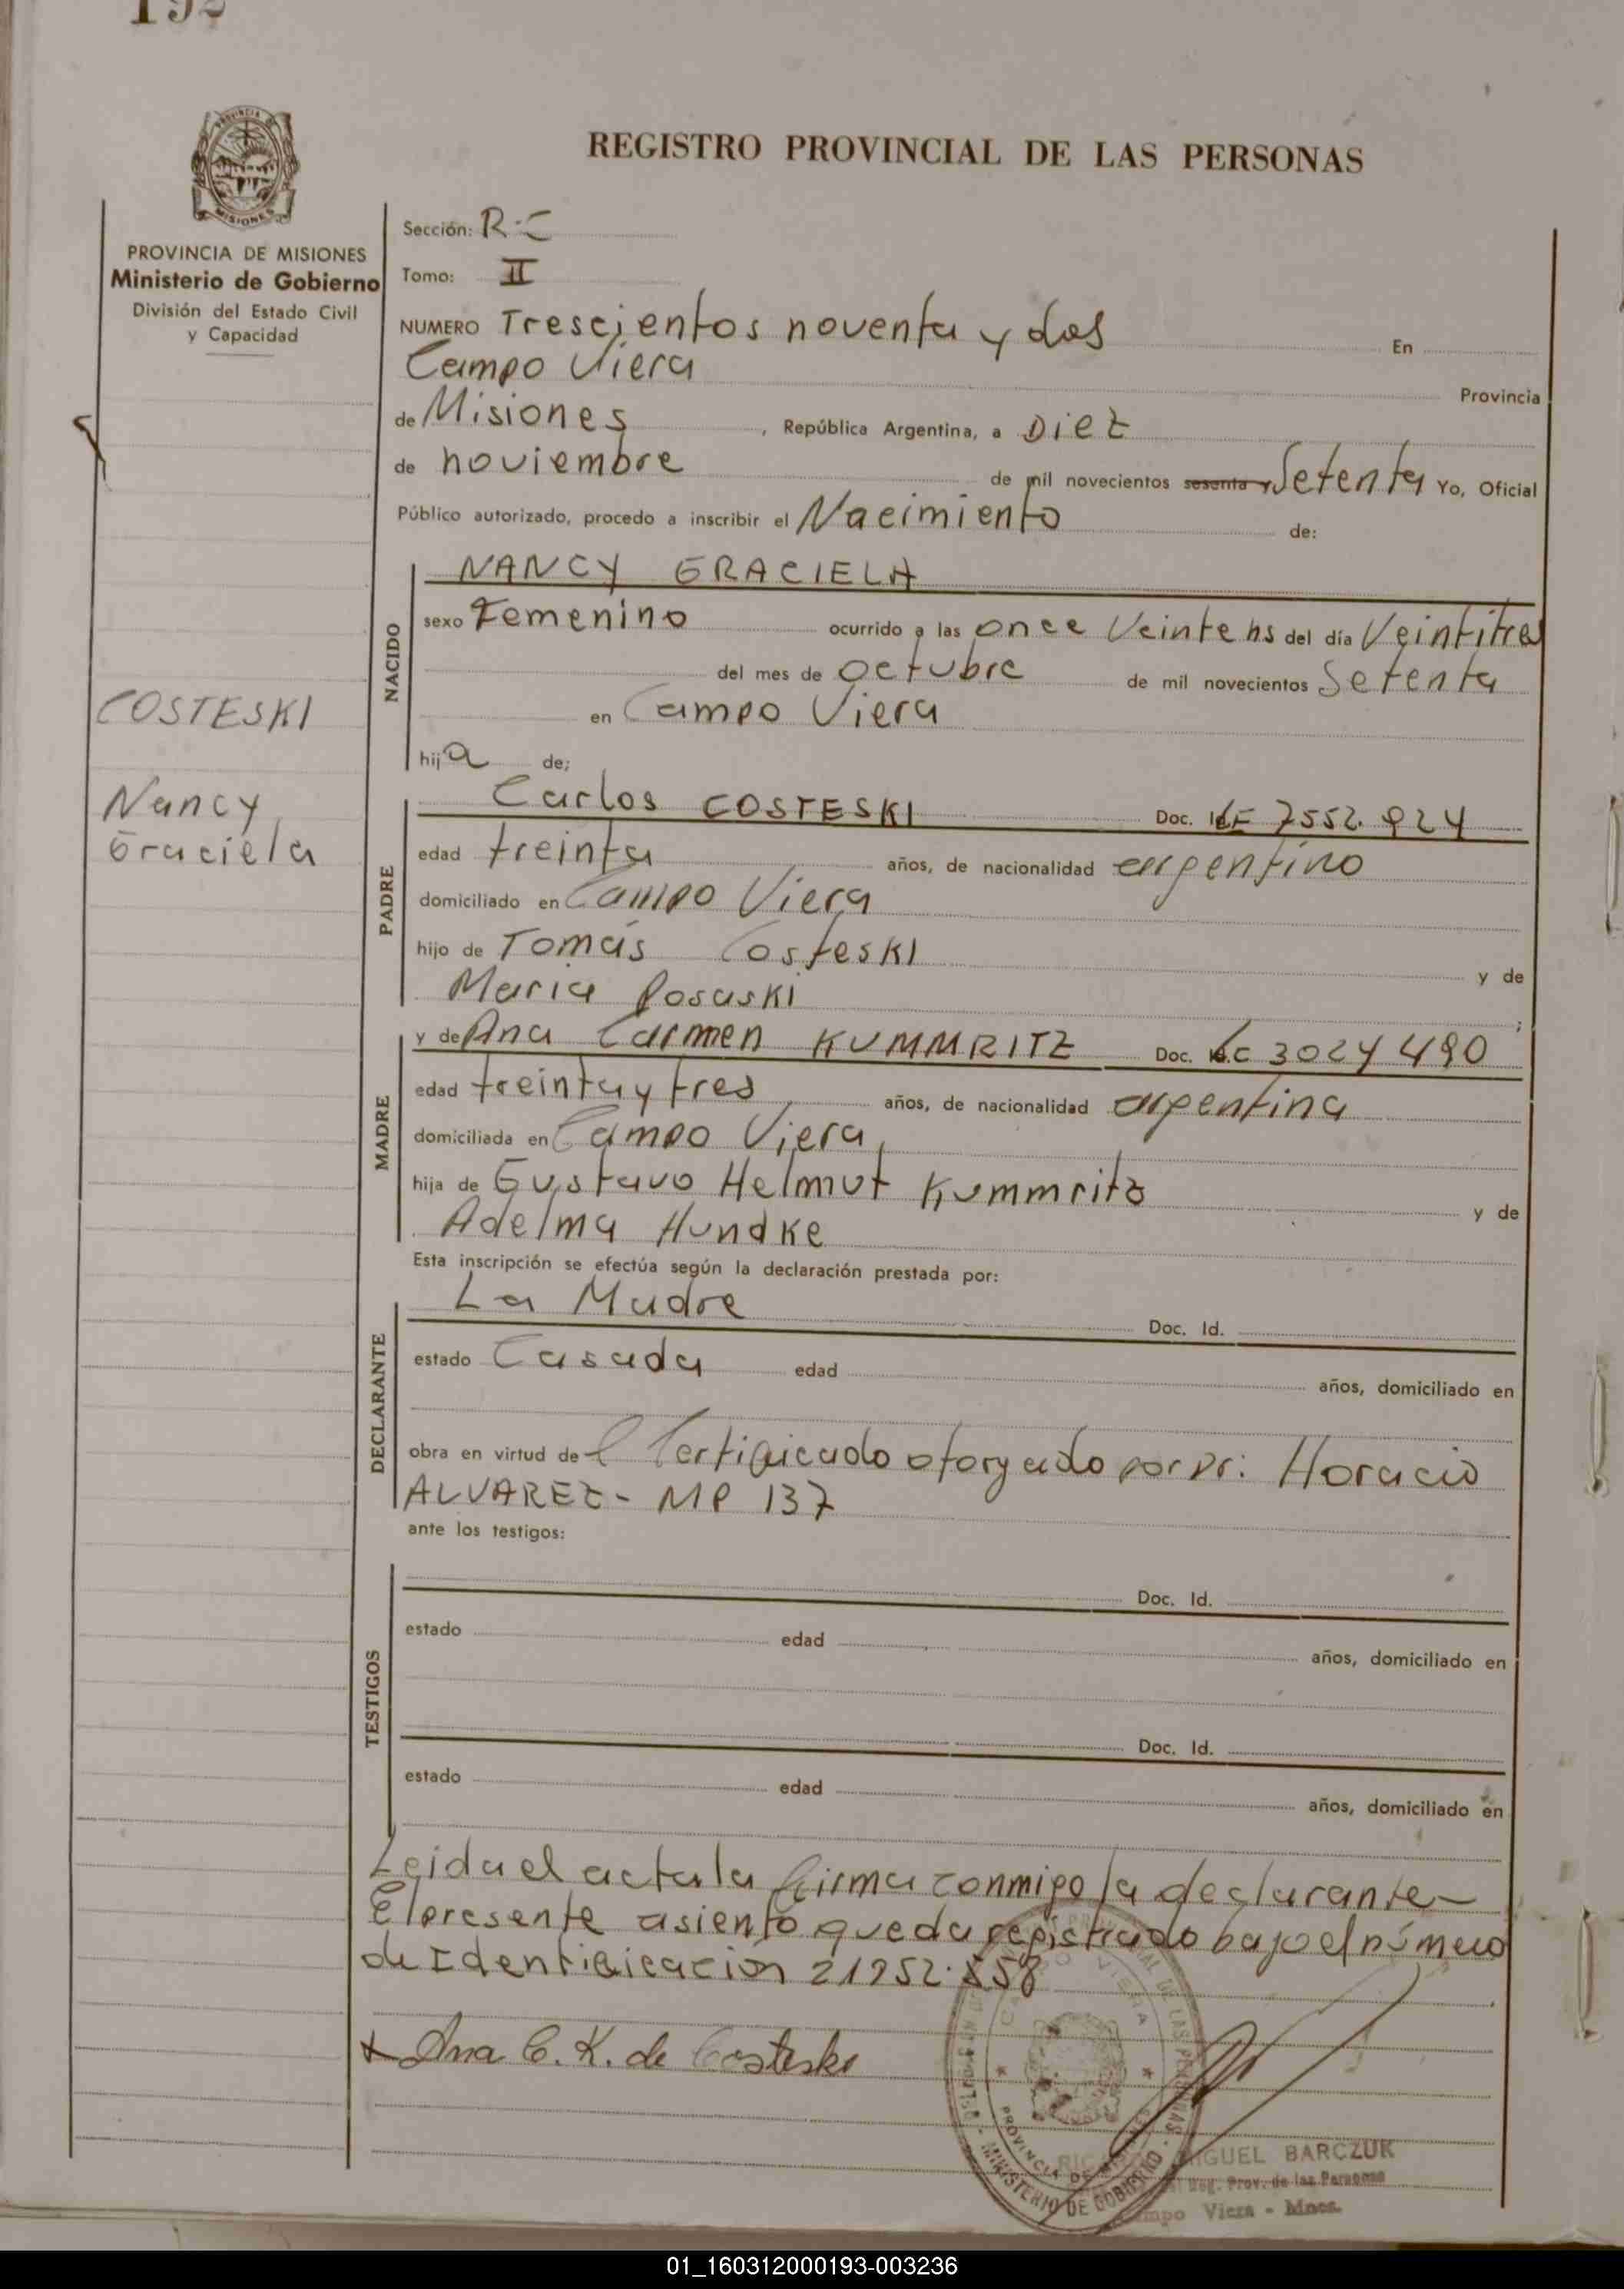 192
REGISTRO PROVINCIAL DE LAS PERSONAS
PROVINCIA DE MISIONES
Ministerio de Gobierno
División del Estado Civil
y Capacidad
Sección: R.C
Tomo: II
NUMERO Trescientos noventa y dos En
Campo Viera Provincia
de Misiones, República Argentina, a Diez
de noviembre de mil novecientos sesenta y Setenta Yo, Oficial
Público autorizado, procedo a inscribir el Nacimiento de:
NACIDO
NANCY GRACIELA
sexo Femenino ocurrido a las once Veinte hs del día Veintitres
del mes de octubre de mil novecientos Setenta
en Campo Viera
hija de;
COSTESKI
Nancy
Graciela
PADRE
Carlos COSTESKI Doc. LE 7552.924
edad treinta años, de nacionalidad argentino
domiciliado en Campo Viera
hijo de Tomás Costeski y de
Maria Posaski ;
MADRE
y de Ana Carmen KUMMRITZ Doc. LC 3024490
edad treinta y tres años, de nacionalidad argentina
domiciliada en Campo Viera,
hija de Gustavo Helmut Kummritz y de
Adelma Hundke
Esta inscripción se efectúa según la declaración prestada por:
DECLARANTE
La Madre Doc. Id.
estado Casada edad años, domiciliado en
obra en virtud del Certificado otorgado por Dr: Horacio
ALVAREZ - MP 137
ante los testigos:
TESTIGOS
Doc. Id.
estado edad años, domiciliado en
Doc. Id.
estado edad años, domiciliado en
Leida el acta la firma conmigo la declarante-
El presente asiento queda registrado bajo el número
de Identificación 21952.558
Ana C. K. de Costeski
MIGUEL BARCZUK
Reg. Prov. de las Personas
Campo Viera - Mnes.
PROVINCIA DE
MINISTERIO DE GOBIERNO
01_160312000193-003236